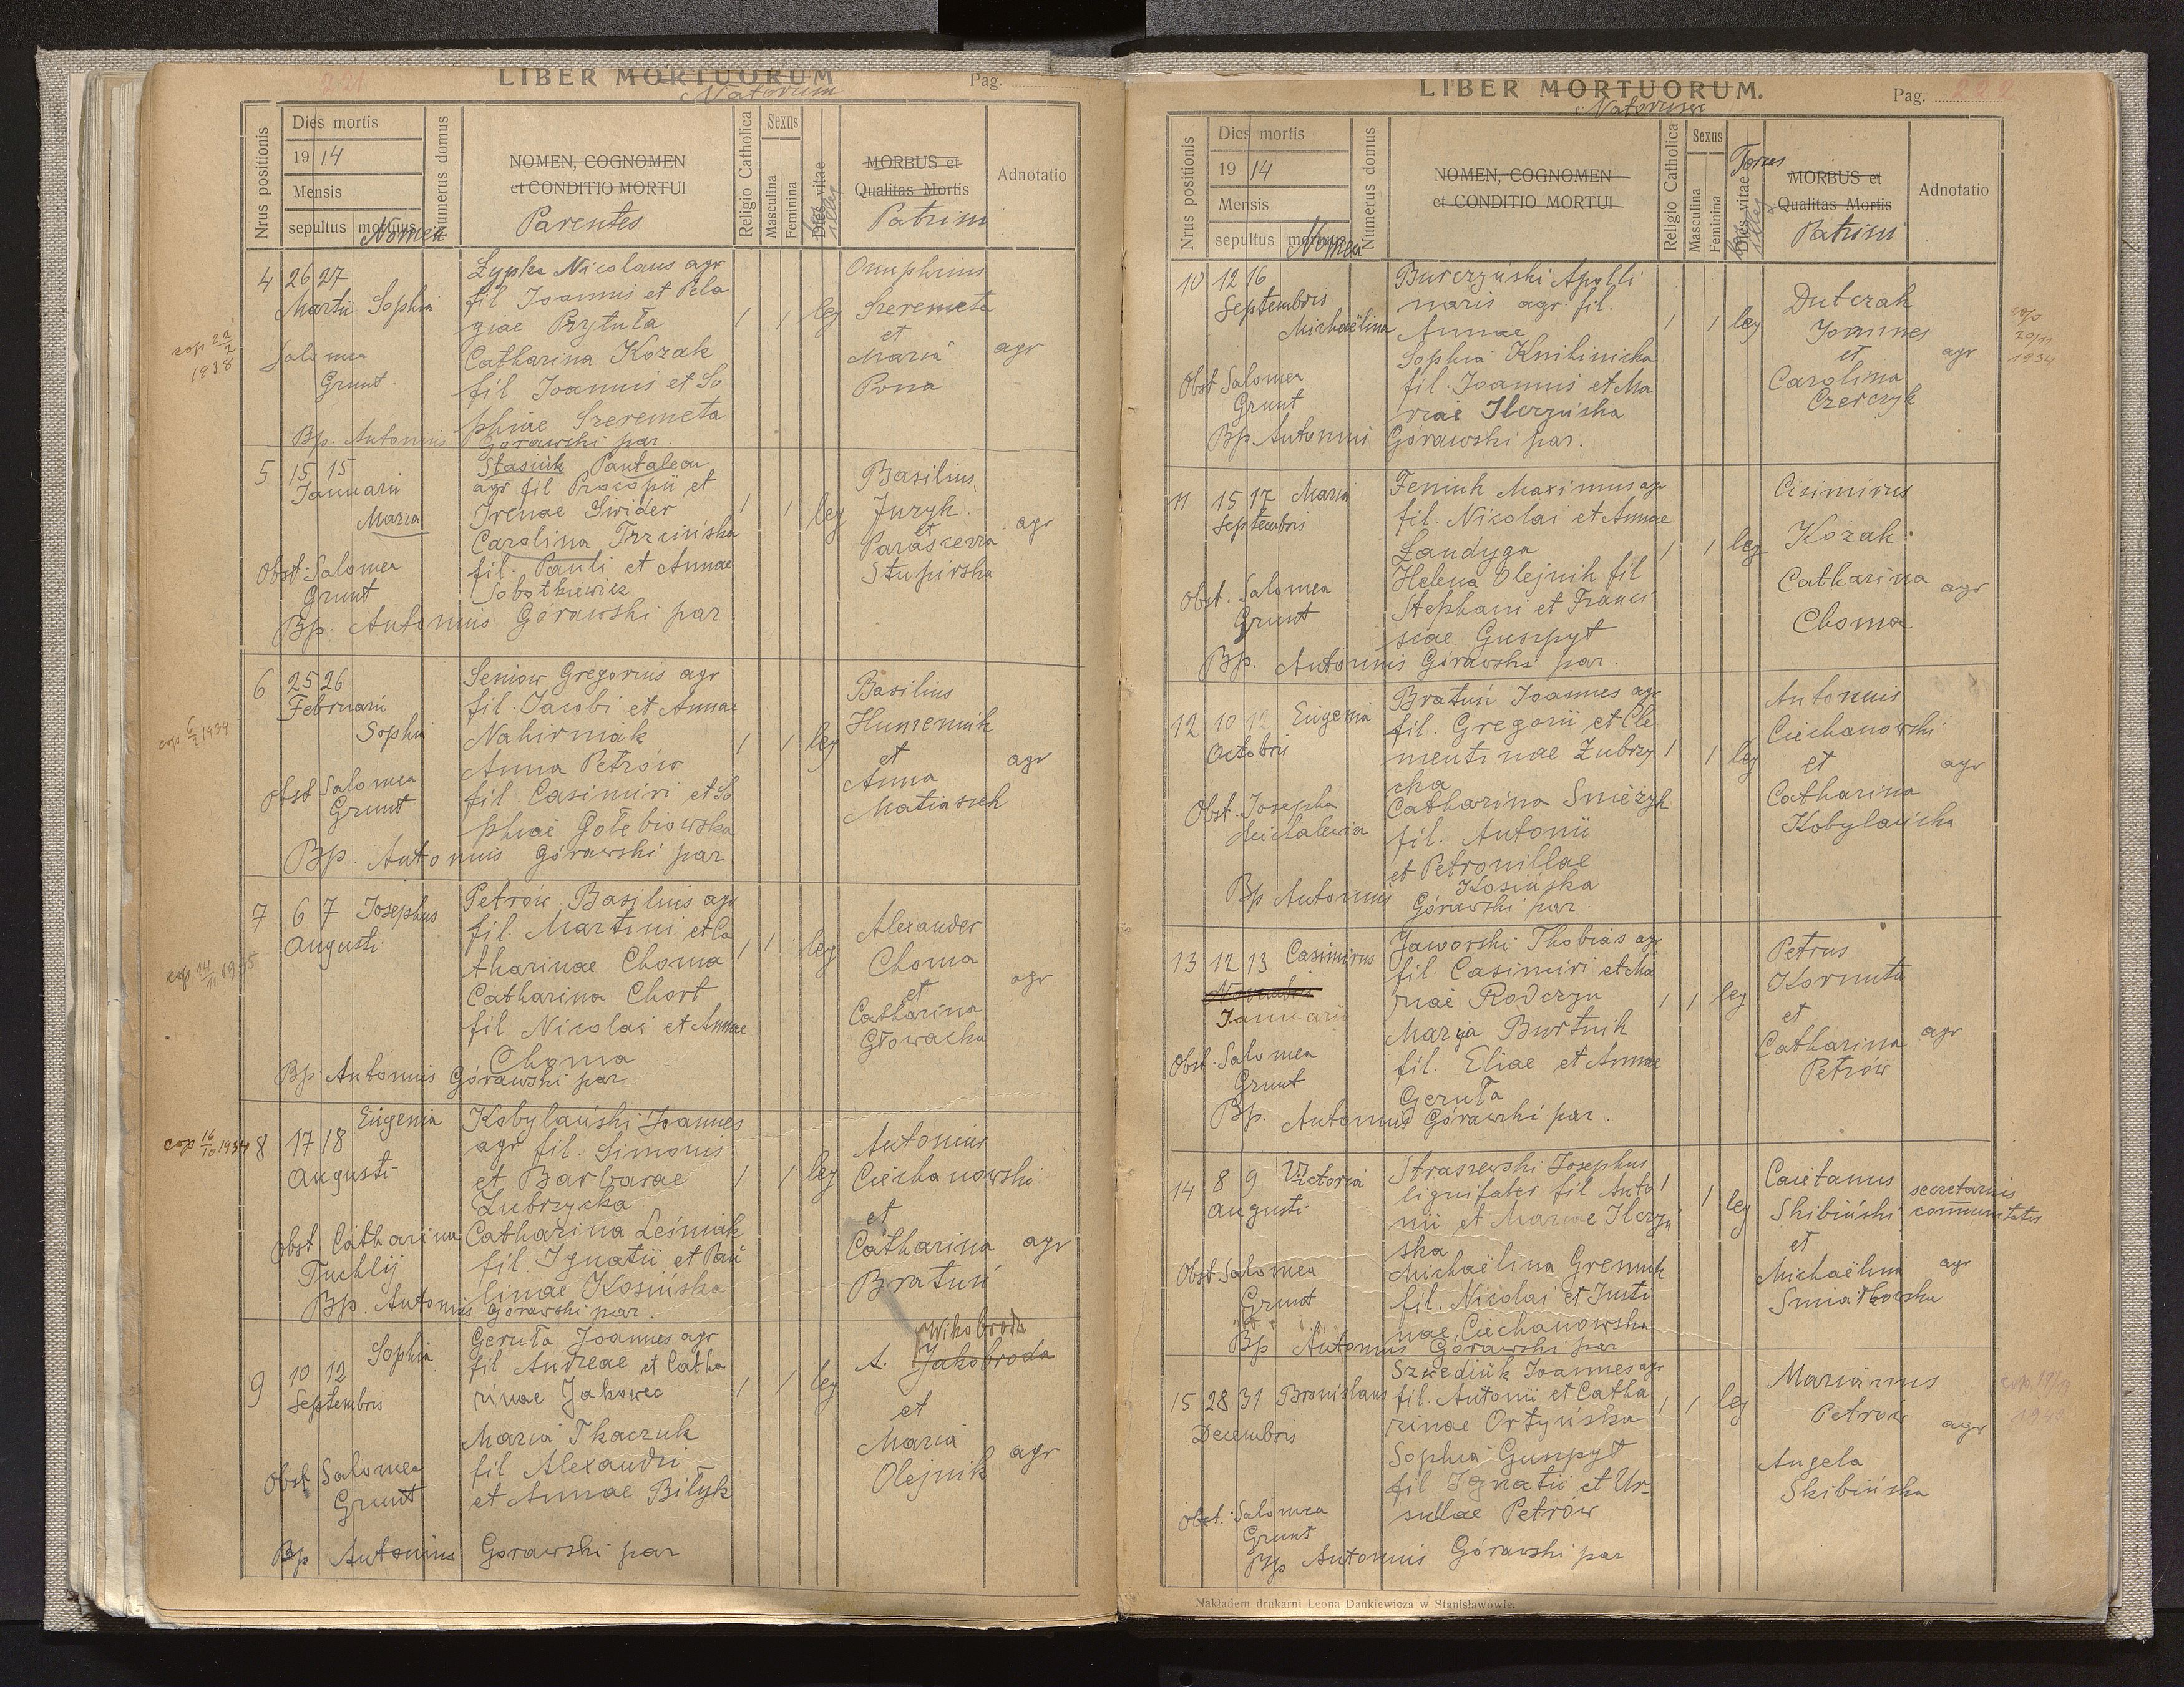 221
LIBER MORTUORUM
Natorum
Pag.
Nrus positionis
Dies mortis
19 14
Mensis
sepultus mortuus
Nomen
Numerus domus
NOMEN, COGNOMEN
et CONDITIO MORTUI
Parentes
Religio Catholica
Sexus
Masculina
Feminina
Dies vitae
MORBUS et
Qualitas Mortis
Patrini
Adnotatio
4 26 27
Martii Sophia
Salomea
Grunt
cop 22/2
1938
Łypka Nicolaus agr
fil Joannis et Pela
giae Prytuła
Catharina Kozak
fil Joannis et So
phiae Szeremeta
Bp. Antonius Górawski par.
1 1 leg
Onuphrius
Szeremeta
et
Maria
Pona
agr
5 15 15
Januarii
Maria
Obst. Salomea
Grunt
Stasiuk Pantaleon
agr fil Procopii et
Irenae Swider
Carolina Trzcińska
fil. Pauli et Annae
Sobotkiewicz
Bp. Antonius Górawski par
1 1 leg
Basilius
Juzyk
et
Parascewia
Stupirska
agr
6 25 26
Februarii
Sophia
cop 6/2 1934
Obst Salomea
Grunt
Seniow Gregorius agr
fil. Jacobi et Annae
Nahirniak
Anna Petrów
fil. Casimiri et So
phiae Gołębiowska
Bp. Antonius Górawski par
1 1 leg
Basilius
Humeniuk
et
Anna
Matiaszek
agr
7 6 7 Josephus
Augusti
cop 14/11 1935
Petrów Basilius agr
fil. Martini et Ca
tharinae Choma
Catharina Chort
fil Nicolai et Annae
Choma
Bp. Antonius Górawski par
1 1 leg
Alexander
Choma
et
Catharina
Głowacka
agr
cop 16/10 1934
8 17 18
Eugenia
Augusti
Obst Catharina
Tuchlij
Kobylański Joannes
agr fil. Simonis
et Barbarae
Zubrzycka
Catharina Leśniak
fil. Ignatii et Pau
linae Kosińska
Bp. Antonius Górawski par.
1 1 leg
Antonius
Ciechanowski
et
Catharina
Bratuń
agr
9 10 12
Sophia
Septembris
Obst Salomea
Grunt
Geruła Joannes agr
fil Andreae et Catha
rinae Jakowec
Maria Tkaczuk
fil Alexandri
et Annae Biłyk
Bp Antonius Górawski par
1 1 leg
Wikobroda
A. Jakobroda
et
Maria
Olejnik
agr
LIBER MORTUORUM.
Natorum
Pag. 222
Nrus positionis
Dies mortis
19 14
Mensis
sepultus mortuus
Nomen
Numerus domus
NOMEN, COGNOMEN
et CONDITIO MORTUI
Religio Catholica
Sexus
Masculina
Feminina
Dies vitae
Torus
MORBUS et
Qualitas Mortis
Patrini
Adnotatio
10 12 16
Septembris
Michaëlina
Obst Salomea
Grunt
Burczyński Apolli
naris agr. fil.
Annae
Sophia Knihinicka
fil. Joannis et Ma
riae Ilczyńska
Bp Antonius Górawski par.
1 1 leg
Dutczak
Joannes
et
Carolina
Czerczyk
agr
cop
20/11
1934
11 15 17 Maria
Septembris
Obst. Salomea
Grunt
Feniuk Maximus agr
fil. Nicolai et Annae
Łandyga
Helena Olejnik fil
Stephani et Franci
scae Guszpyt
Bp. Antonius Górawski par.
1 1 leg
Casimirus
Kozak
Catharina
Choma
agr
12 10 12 Eugenia
Octobris
Obst. Josepha
Michalewicz
Bratuń Joannes agr
fil. Gregorii et Cle
mentinae Zubrzy
cka
Catharina Snieżyk
fil. Antonii
et Petronillae
Kosińska
Bp Antonius Górawski par.
1 1 leg
Antonius
Ciechanowski
et
Catharina
Kobylańska
agr
13 12 13 Casimirus
Novembris
Januarii
Obst. Salomea
Grunt
Jaworski Thobias agr
fil. Casimiri et Ma
riae Rodczyn
Marya Burtnik
fil. Eliae et Annae
Geruła
Bp. Antonius Górawski par.
1 1 leg
Petrus
Kornuta
et
Catharina
Petrów
agr
14 8 9 Victoria
Augusti
Obst Salomea
Grunt
Straszewski Josephus
lignifaber fil Anto
nii et Mariae Ilczyń
ska
Michaëlina Greniuk
fil. Nicolai et Justi
nae Ciechanowska
Bp Antonius Górawski par
1 1 leg
Caietanus
Skibiński
secretarius
communitatis
et
Michaëlina
Smiałkowska
agr
15 28 31 Bronislaus
Decembris
Obst. Salomea
Grunt
Szwediuk Joannes agr
fil. Antonii et Catha
rinae Ortyńska
Sophia Guszpyt
fil Ignatii et Ur-
sulae Petrów
Bp Antonius Górawski par
1 1 leg
Marianus
Petrów
Angela
Skibińska
agr
Nakładem drukarni Leona Dankiewicza w Stanisławowie.